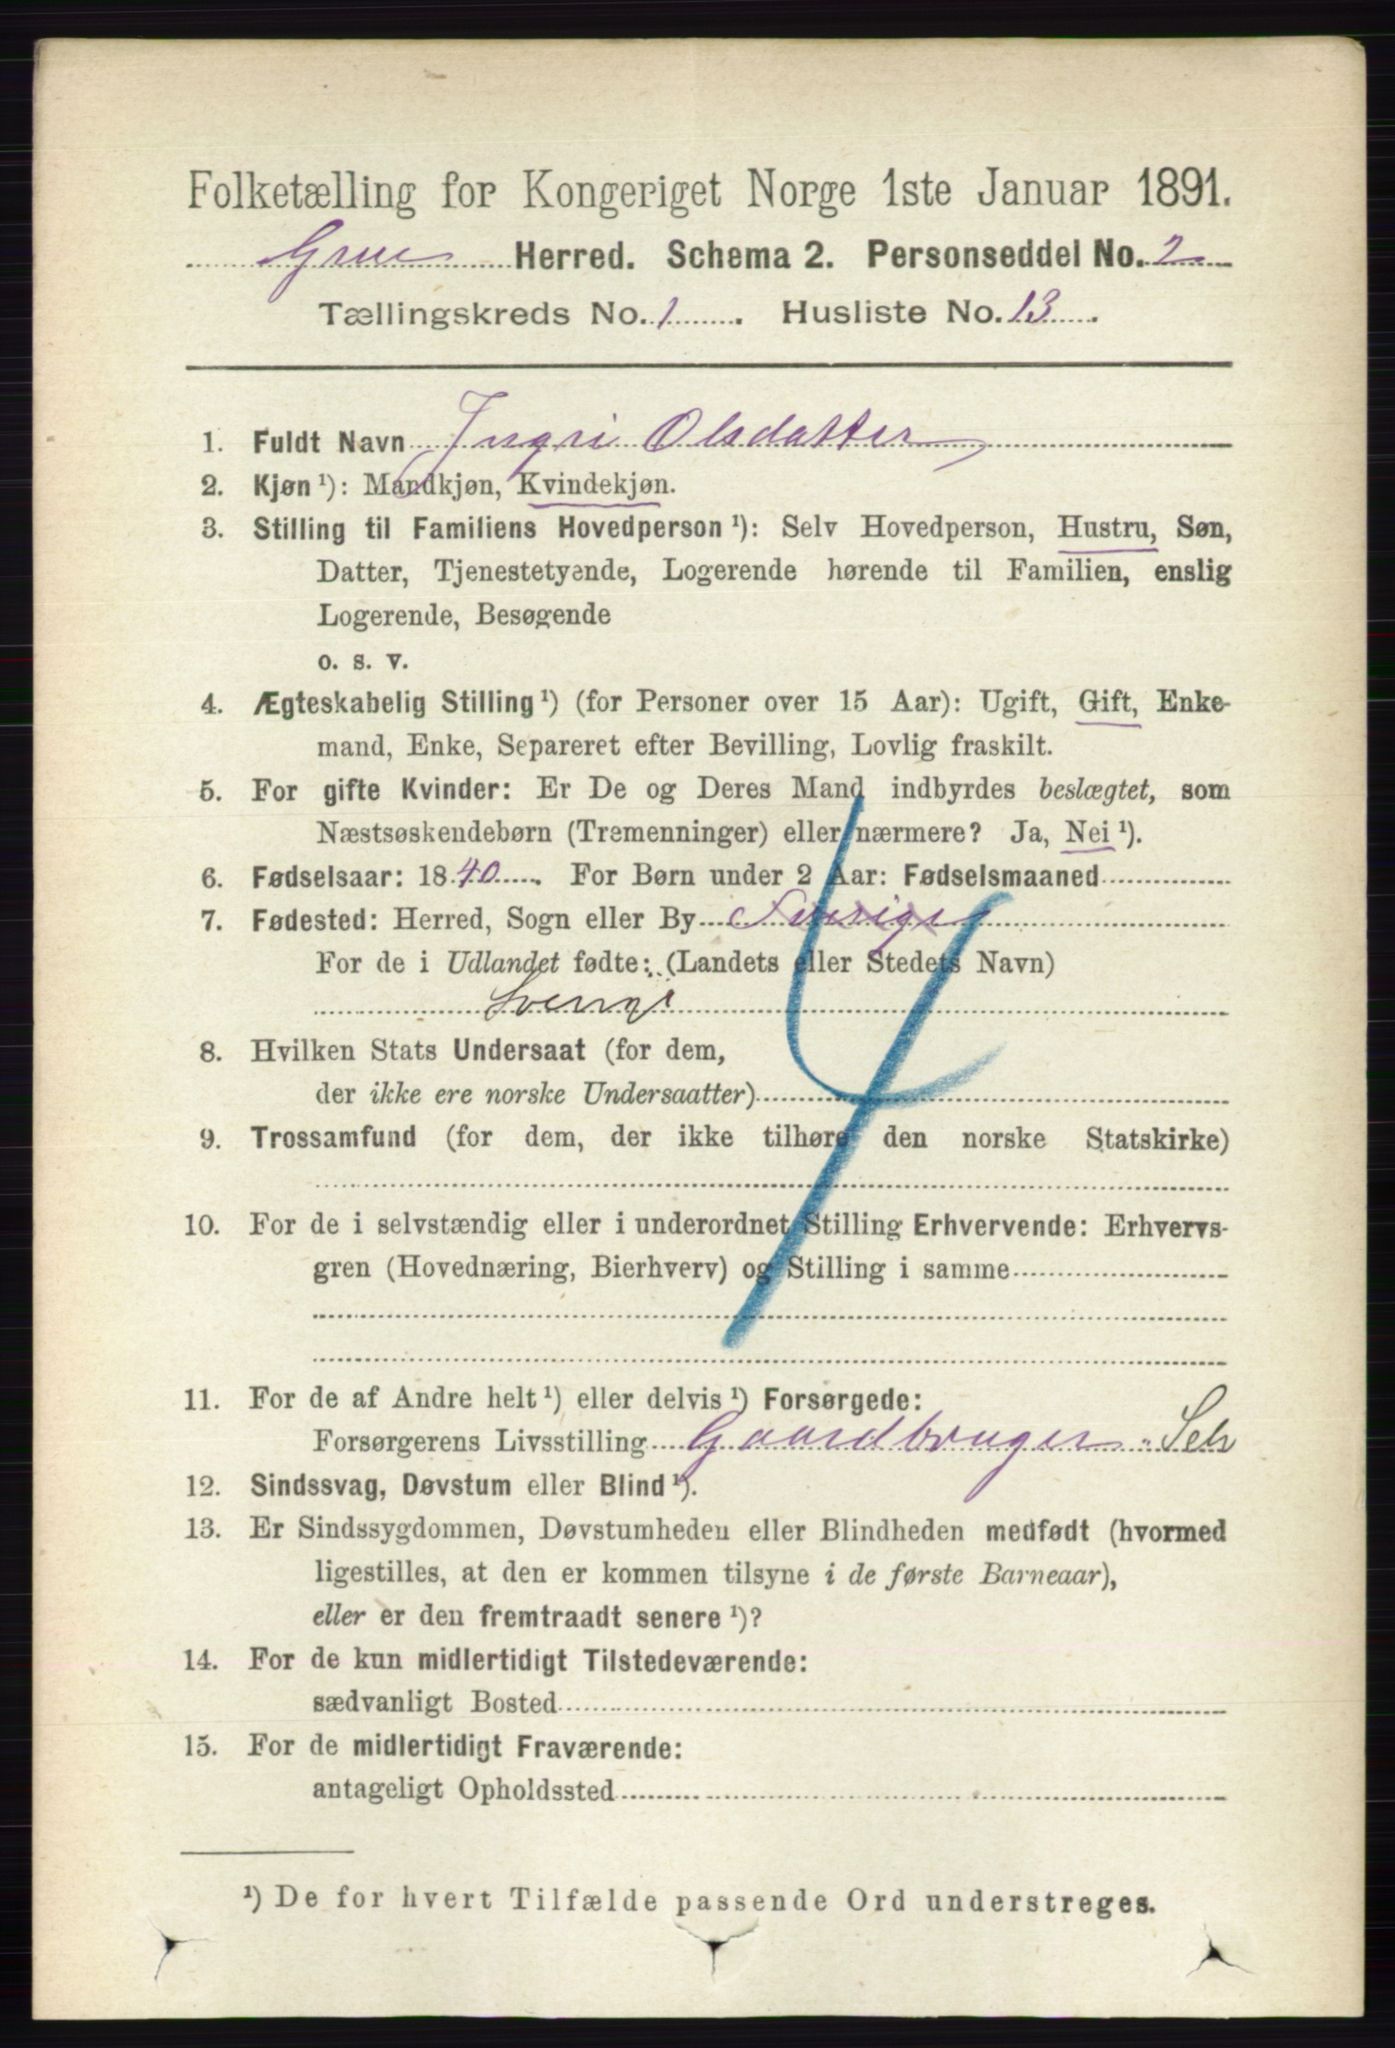 Folketælling for Kongeriget Norge 1ste Januar 1891.
Grue Herred. Schema 2. Personseddel No. 2
Tællingskreds No. 1. Husliste No. 13.
1. Fuldt Navn Ingri Olsdatter
2. Kjøn ¹): Mandkjøn, Kvindekjøn.
3. Stilling til Familiens Hovedperson ¹): Selv Hovedperson, Hustru, Søn,
Datter, Tjenestetyende, Logerende hørende til Familien, enslig
Logerende, Besøgende
o. s. v.
4. Ægteskabelig Stilling ¹) (for Personer over 15 Aar): Ugift, Gift, Enke-
mand, Enke, Separeret efter Bevilling, Lovlig fraskilt.
5. For gifte Kvinder: Er De og Deres Mand indbyrdes beslægtet, som
Næstsøskendebørn (Tremenninger) eller nærmere? Ja, Nei ¹).
6. Fødselsaar: 1840. For Børn under 2 Aar: Fødselsmaaned
7. Fødested: Herred, Sogn eller By Sverige
For de i Udlandet fødte: (Landets eller Stedets Navn)
Sverige
8. Hvilken Stats Undersaat (for dem,
der ikke ere norske Undersaatter)
9. Trossamfund (for dem, der ikke tilhøre den norske Statskirke)
10. For de i selvstændig eller i underordnet Stilling Erhvervende: Erhvervs-
gren (Hovednæring, Bierhverv) og Stilling i samme
4
11. For de af Andre helt ¹) eller delvis ¹) Forsørgede:
Forsørgerens Livsstilling Gaardbruger. Selv
12. Sindssvag, Døvstum eller Blind ¹).
13. Er Sindssygdommen, Døvstumheden eller Blindheden medfødt (hvormed
ligestilles, at den er kommen tilsyne i de første Barneaar),
eller er den fremtraadt senere ¹)?
14. For de kun midlertidigt Tilstedeværende:
sædvanligt Bosted
15. For de midlertidigt Fraværende:
antageligt Opholdssted
¹) De for hvert Tilfælde passende Ord understreges.